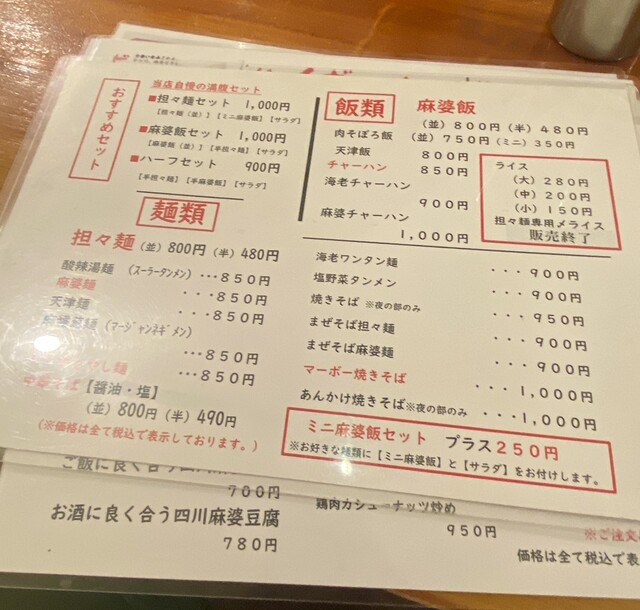 おすすめセット
当店自慢の満腹セット
■担々麺セット 1,000円
【担々麺（並）】【ミニ麻婆飯】【サラダ】
■麻婆飯セット 1,000円
【麻婆飯（並）】【半担々麺】【サラダ】
■ハーフセット 900円
【半担々麺】【半麻婆飯】【サラダ】
飯類
麻婆飯
（並）８００円（半）４８０円
肉そぼろ飯 （並）７５０円（ミニ）３５０円
天津飯 ８００円
チャーハン ８５０円
海老チャーハン
９００円
麻婆チャーハン
１,０００円
ライス
（大）２８０円
（中）２００円
（小）１５０円
担々麺専用〆ライス
販売終了
麺類
担々麺（並）800円（半）480円
酸辣湯麺 （スーラータンメン） ･･･８５０円
麻婆麺 ･･･８５０円
天津麺 ･･･８５０円
（マージャンネギメン）
･･･８５０円
し麺 ･･･８５０円
中華そば【醤油・塩】
（並）800円（半）490円
（※価格は全て税込で表示しております。）
海老ワンタン麺 ･･･９００円
塩野菜タンメン ･･･９００円
焼きそば ※夜の部のみ ･･･９５０円
まぜそば担々麺 ･･･９００円
まぜそば麻婆麺 ･･･９００円
マーボー焼きそば ･･･１,０００円
あんかけ焼きそば※夜の部のみ ･･･１,０００円
ミニ麻婆飯セット プラス２５０円
※お好きな麺類に【ミニ麻婆飯】と【サラダ】をお付けします。
ご飯に良く合う四川
７００円
お酒に良く合う四川麻婆豆腐
７８０円
鶏肉カシューナッツ炒め
９５０円
※ご注文
価格は全て税込で表